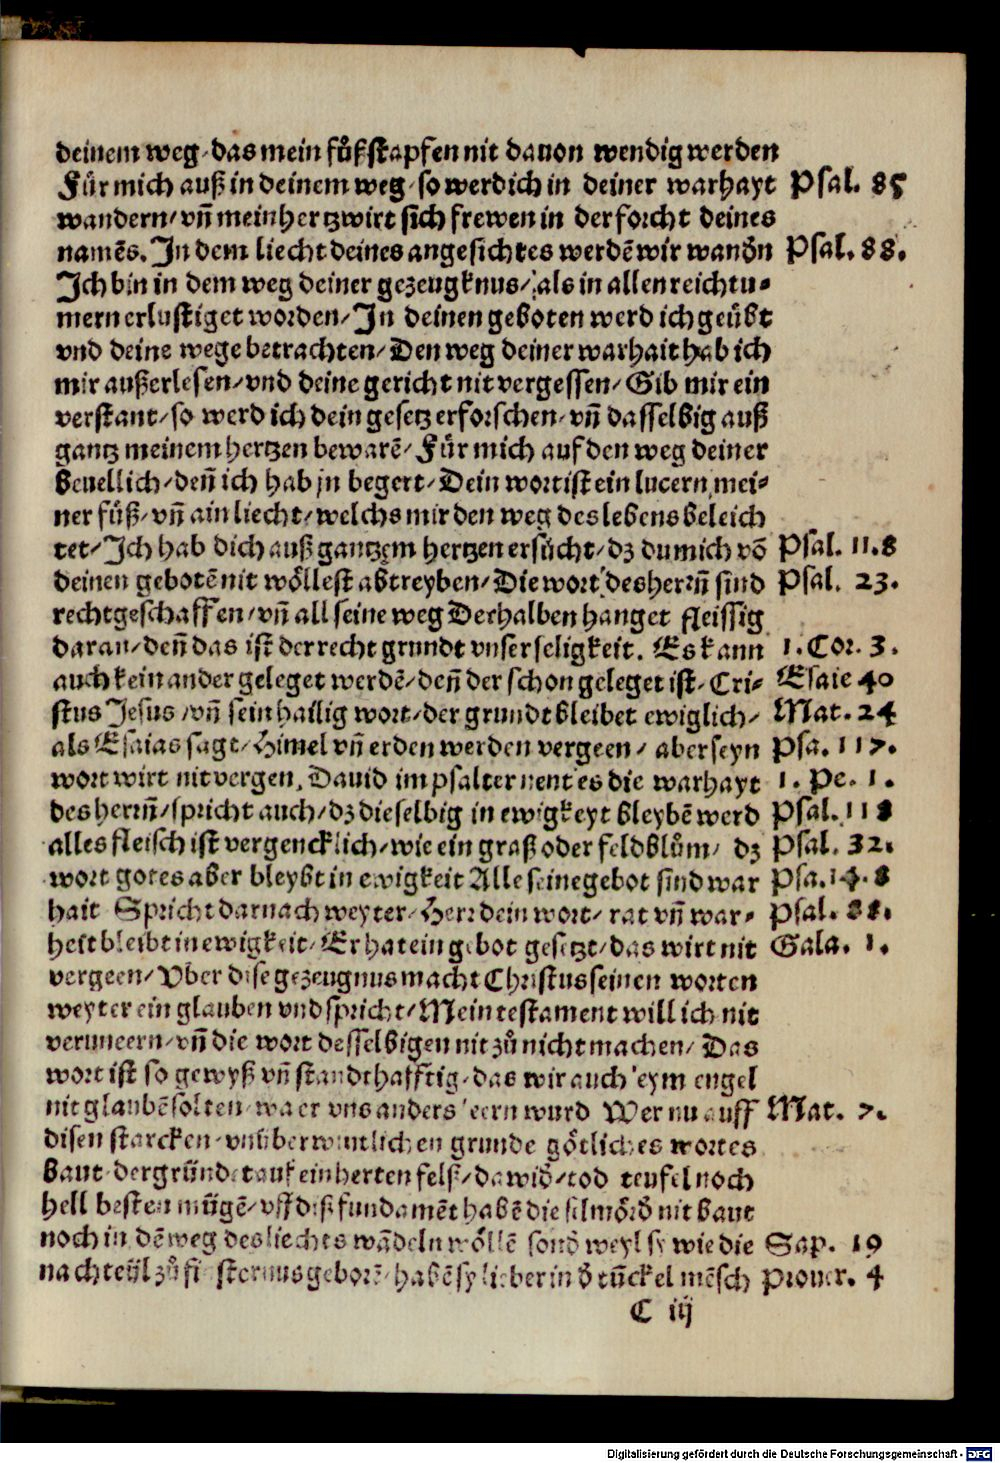 deinem weg/ das mein fůßstapfen nit dauon wendig werden
Für mich auß in deinem weg/ so werd ich in deiner warhayt Psal. 85
wandern/ vñ mein hertz wirt sich frewen in der forcht deines
namẽs. In dem liecht deines angesichtes werdẽ wir wandn Psal. 88.
Ich bin in dem weg deiner gezeugknus/ als in allen reichtu-
mern erlustiget worden/ In deinen geboten werd ich geübt
vnd deine wege betrachten/ Den weg deiner warhait hab ich
mir außerlesen/ vnd deine gericht nit vergessen/ Gib mir ein
verstant/ so werd ich dein gesetz erforschen/ vñ dasselbig auß
gantz meinem hertzen bewarẽ/ Für mich auf den weg deiner
beuellich/ deñ ich hab jn begert/ Dein wort ist ein lucern mei-
ner füß/ vñ ain liecht/ welchs mir den weg des lebens beleich
tet/ Ich hab dich auß gantzem hertzen ersůcht/ dz du mich võ Psal. 11.8
deinen gebotẽ nit wöllest abtreyben/ Die wort des herrñ sind Psal. 23.
rechtgeschaffen/ vñ all seine weg Derhalben hanget fleissig
daran/ deñ das ist der recht grundt vnser seligkeit. Es kann 1. Cor. 3.
auch kein ander geleget werdẽ/ deñ der schon geleget ist/ Cri- Esaie 40
stus Jesus/ vñ sein hailig wort/ der grundt bleibet ewiglich/ Mat. 24
als Esaias sagt/ Himel vñ erden werden vergeen/ aber seyn Psa. 117.
wort wirt nit vergen. Dauid im psalter nent es die warhayt 1. Pe. 1.
des herrñ/ spricht auch/ dz dieselbig in ewigkeyt bleybẽ werd Psal. 118
alles fleisch ist vergencklich/ wie ein graß oder feldblům/ dz Psal. 32.
wort gotes aber bleybt in ewigkeit Alle seine gebot sind war Psa. 14.8
hait Spricht darnach weyter/ Herr dein wort/ rat vñ war- Psal. 88.
heit bleibt in ewigkeit/ Er hat ein gebot gesetzt/ das wirt nit Gala. 1.
vergeen/ Vber dise gezeugnus macht Christus seinen worten
weyter ein glauben vnd spricht/ Mein testament will ich nit
veruneern/ vñ die wort desselbigen nit zů nicht machen/ Das
wort ist so gewyß vñ standthafftig/ das wir auch eym engel
nit glaubẽ solten/ wa er vns anders leern wurd Wer nu auff Mat. 7.
disen starcken/ vnüberwintlichen grunde götliches wortes
baut/ der gründet auf ein herten felß/ da wid/ tod teufel noch
hell besten mügẽ/ vff diß fundamẽt habẽ die selmörd nit baut
noch in dẽ weg des liechts wãdeln wöllẽ sond weyl sy wie die Sap. 19
nachteül zů finsternus geborẽ/ habẽ sy lieber in d tũckel mẽsch Prouer. 4
C iij
Digitalisierung gefördert durch die Deutsche Forschungsgemeinschaft - DFG